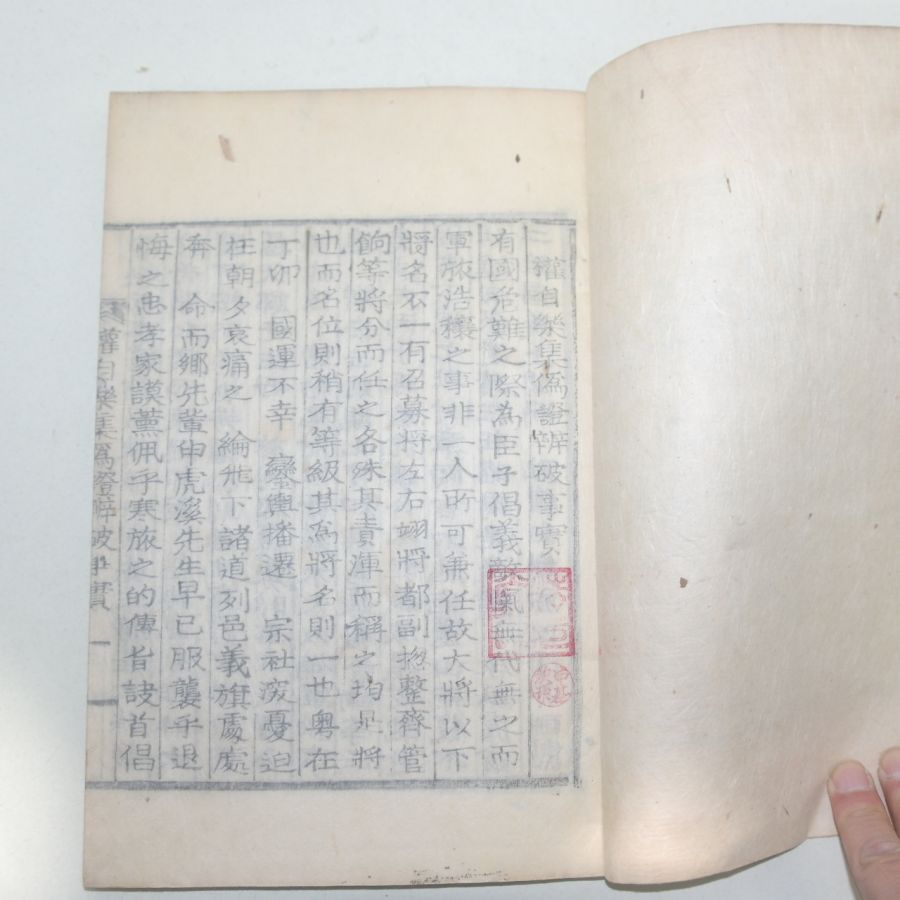 權自樂集僞證辨破事實
有國危難之際為臣子倡義敵愾無代無之而
軍旅浩穰之事非一人所可兼任故大將以下
將名不一有召募將左右翊將都副摠整齊管
餉等將分而任之各殊其責渾而稱之均是將
也而名位則稍有等級其爲將名則一也粤在
丁卯 國運不幸 鑾輿播遷 宗社深憂迫
在朝夕哀痛之 綸飛下諸道列邑義旗處處
奔 命而鄉先輩申虎溪先生早已服襲乎退
悔之忠孝家謨薰佩乎寒旅之的傳旨訣首倡
權自樂集爲證辨破事實 一